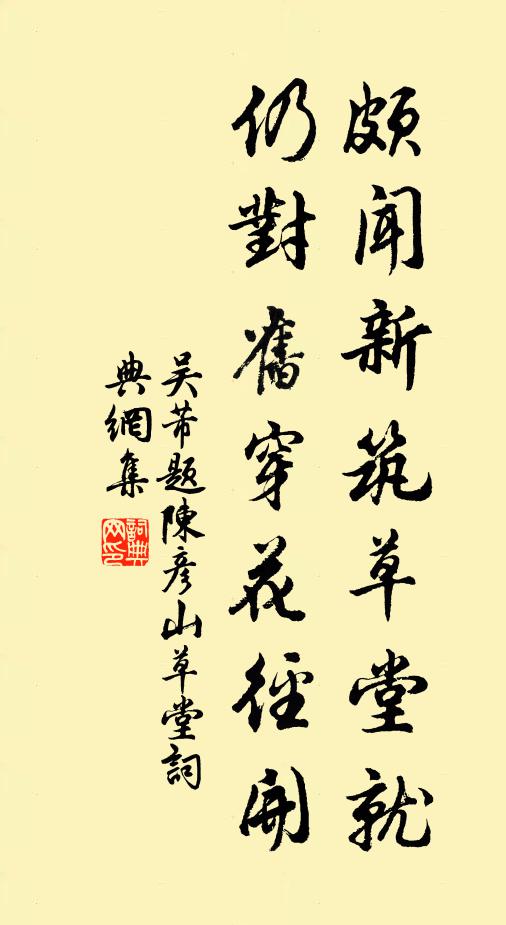 頗聞新筑草堂就
仍對舊穿花徑開
吴芾題陳彦山草堂詞
典網集
詞典網印